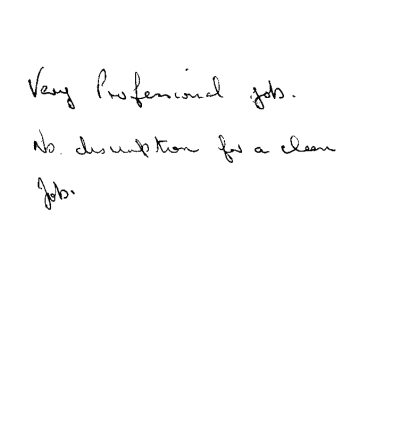 Very Professional job.
No. disruption for a clean
Job.